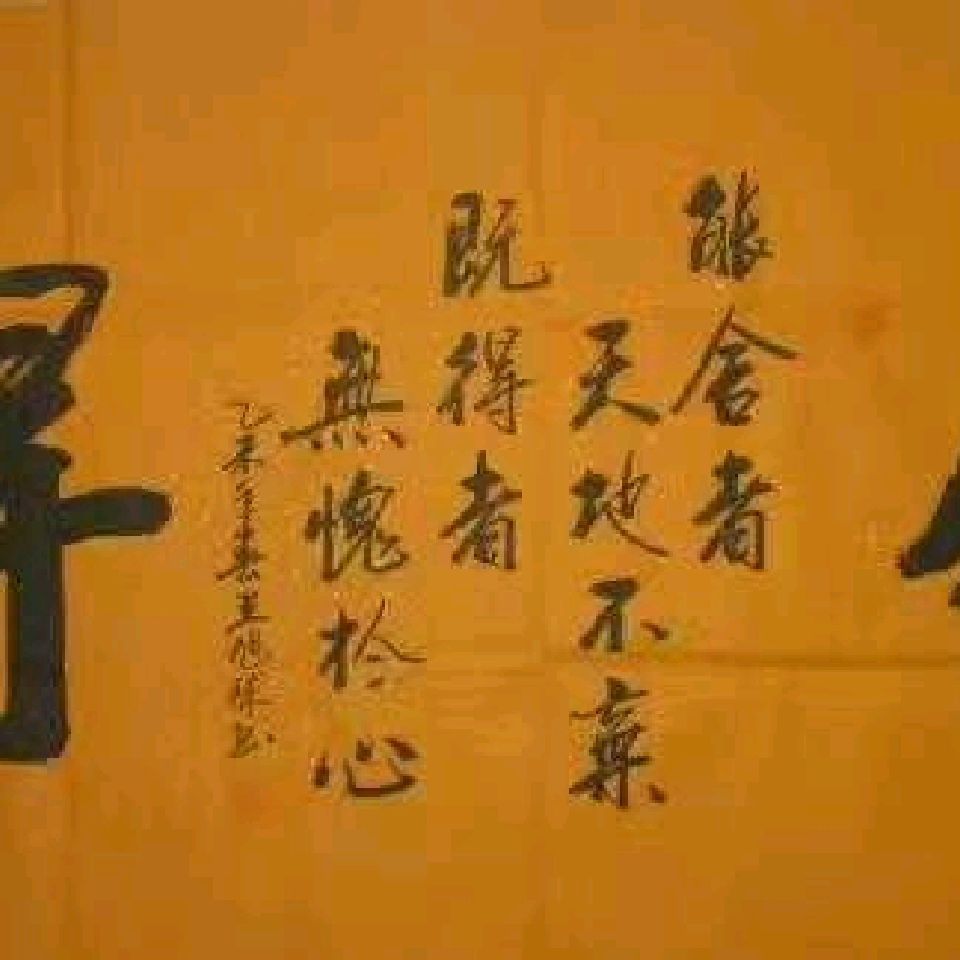 能舍者
天地不棄
既得者
無愧於心
乙未